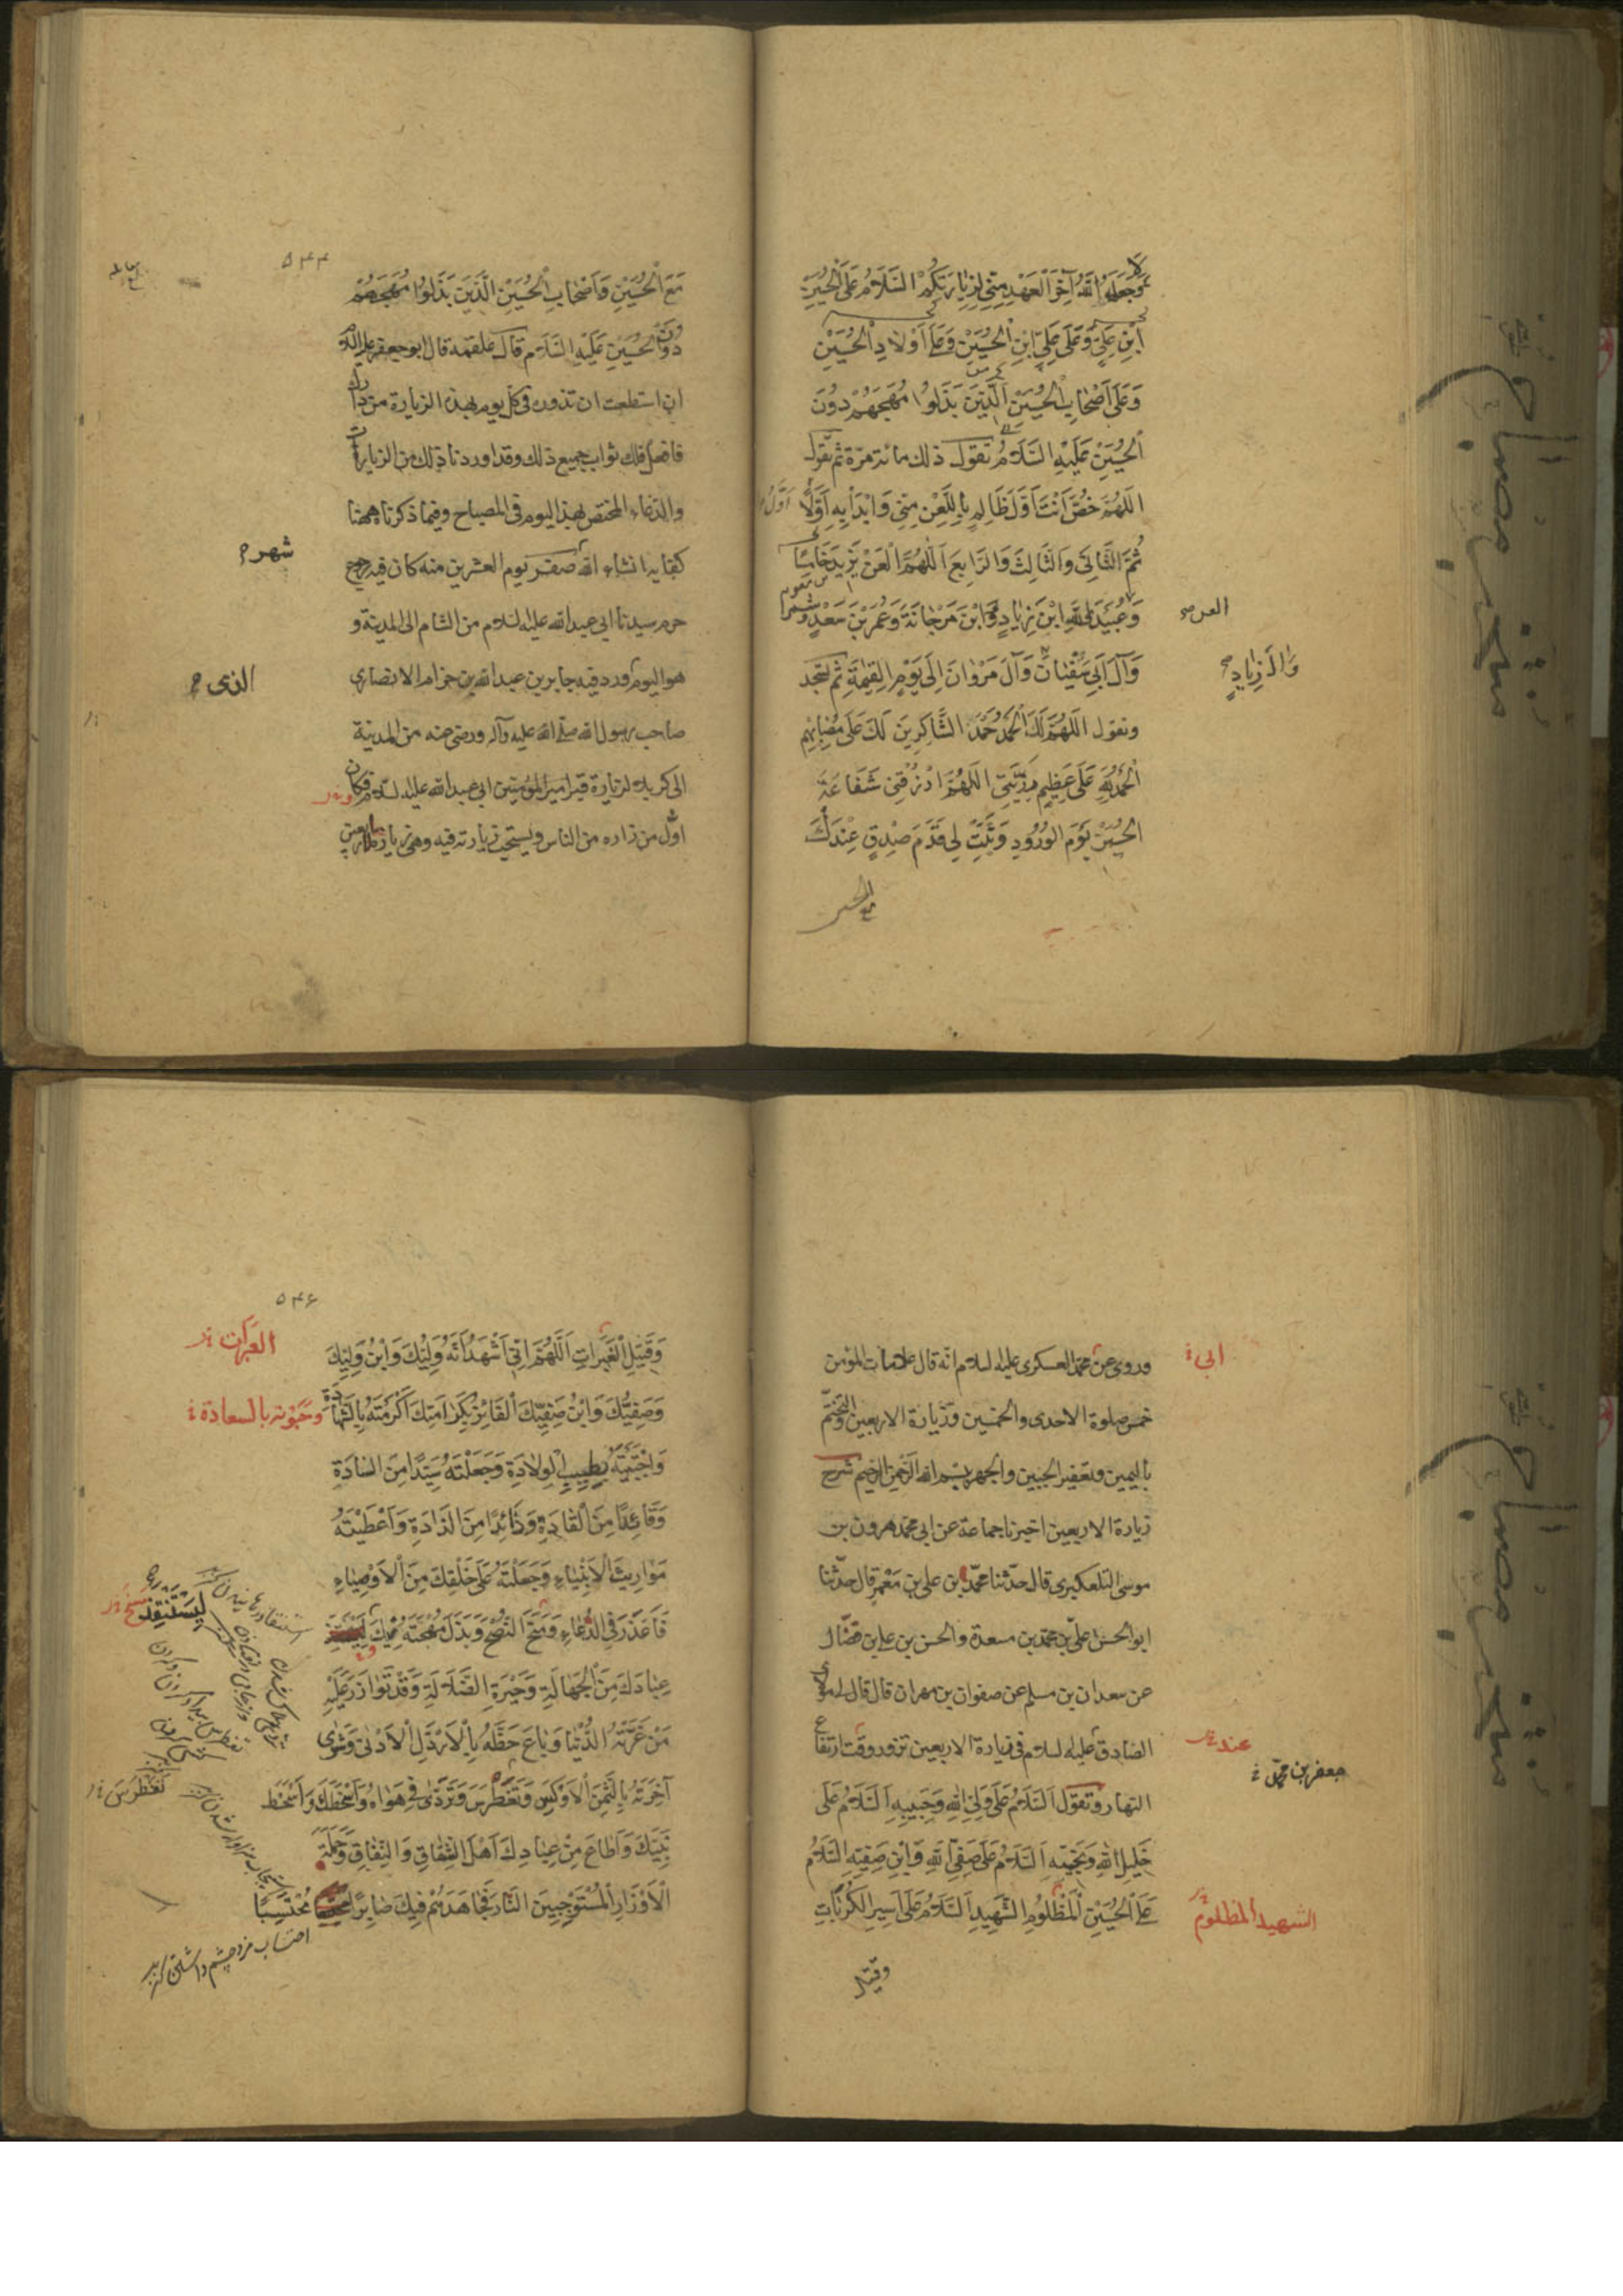 وَلَا جَعَلَهُ اللهُ آخِرَ الْعَهْدِ مِنّي لِزِيارَتِكُمْ السَّلَامُ عَلَى الْحُسَيْنِ
ابْنِ عَلِيٍّ وَعَلَى عَلِيِّ ابْنِ الْحُسَيْنِ وَعَلَى أَوْلادِ الْحُسَيْنِ
وَعَلَى أَصْحابِ الْحُسَيْنِ الَّذِينَ بَذَلُوا مُهَجَهُمْ دُونَ
الْحُسَيْنِ عَلَيْهِ السَّلَامُ تقول ذلك مائة مرّة ثم تقول
اللّهُمَّ خُصَّ أَنْتَ أَوَّلَ ظَالِمٍ بِاللَّعْنِ مِنّي وَابْدَأْ بِهِ أَوَّلًا
ثُمَّ الثَّانِيَ وَالثَّالِثَ وَالرَّابِعَ اَللّهُمَّ الْعَنْ يَزِيدَ خَامِسًا
وَعُبَيْدَ اللهِ ابْنَ زِيادٍ وَابْنَ مَرْجانَةَ وَعُمَرَ بْنَ سَعْدٍ وشمرا
العن
وَآلَ أَبِي سُفْيَانَ وَآلَ مَرْوَانَ إِلَى يَوْمِ الْقِيمَةِ ثم تسجد
وَالَ زِيادٍ
وتقول اللّهُمَّ لَكَ الْحَمْدُ حَمْدَ الشَّاكِرِينَ لَكَ عَلَى مُصَابِهِمْ
الْحَمْدُ لِلّهِ عَلَى عَظِيمِ رَزِيَّتِي اللّهُمَّ ارْزُقْنِي شَفَاعَةَ
الْحُسَيْنِ يَوْمَ الْوُرُودِ وَثَبِّتْ لِي قَدَمَ صِدْقٍ عِنْدَكَ
مع الحسين
٥٤٤
مَعَ الْحُسَيْنِ وَأَصْحَابِ الْحُسَيْنِ الَّذِينَ بَذَلُوا مُهَجَهُمْ
دُونَ الْحُسَيْنِ عَلَيْهِ السَّلَامُ قال علقمة قال ابو جعفر عليه السلام
ان استطعت ان تزوره في كل يوم بهذه الزيارة من داره
فافعل فلك ثواب جميع ذلك وقد اوردنا ذلك من الزيارات
والدعاء المختص بهذا اليوم في المصباح وفيما ذكرنا ههنا
كفاية انشاء الله صفر يوم العشرين منه كان فيه رجوع
شهر
حرم سيدنا ابي عبدالله عليه السلام من الشام الى المدينة و
هو اليوم ورد فيه جابر بن عبدالله بن حزام الانصاري
الذي
صاحب رسول الله صلى الله عليه وآله ورضي عنه من المدينة
الى كربلاء لزيارة قبر امير المؤمنين ابي عبدالله عليه السلام فكان
اول من زاره من الناس ويستحب زيارته فيه وهي زيارة الاربعين
وروى عن محمد العسكري عليه السلام انه قال علامات المؤمن
ابي
خمس صلوة الاحدى والخمسين وزيارة الاربعين والتختم
باليمين وتعفير الجبين والجهر ببسم الله الرحمن الرحيم شرح
زيارة الاربعين اخبرنا جماعة عن ابي محمد هرون بن
موسى التلعكبري قال حدّثنا محمّد بن علي بن مَعْمَر قال حدّثنا
ابوالحسن علي بن محمّد بن مسعدة والحسن بن علي بن فضّال
عن سعدان بن مسلم عن صفوان بن مهران قال قال لي مولاي
الصادق عليه السلام في زيارة الاربعين تزور وقت ارتفاع
عند
جعفر بن محمّد
النهار وتقول اَلسَّلَامُ عَلَى وَلِيِّ اللهِ وَحَبِيبِهِ اَلسَّلَامُ عَلَى
خَلِيلِ اللهِ وَنَجِيبِهِ اَلسَّلَامُ عَلَى صَفِيِّ اللهِ وَابْنِ صَفِيِّهِ السَّلَامُ
عَلَى الْحُسَيْنِ الْمَظْلُومِ الشَّهِيدِ اَلسَّلَامُ عَلَى أَسِيرِ الْكُرُبَاتِ
الشهيد المظلوم
وقتيل
٥٤٦
وَقَتِيلِ الْعَبَرَاتِ اَللّهُمَّ اِنّي أَشْهَدُ أَنَّهُ وَلِيُّكَ وَابْنُ وَلِيِّكَ
العبرات
وَصَفِيُّكَ وَابْنُ صَفِيِّكَ الْفَائِزُ بِكَرَامَتِكَ أَكْرَمْتَهُ بِالشَّهَادَةِ
وحَبَوْته بالسعادة
وَاجْتَبَيْتَهُ بِطِيبِ الْوِلادَةِ وَجَعَلْتَهُ سَيِّدًا مِنَ السَّادَةِ
وَقَائِدًا مِنَ الْقَادَةِ وَذَائِدًا مِنَ الذَّادَةِ وَأَعْطَيْتَهُ
مَوَارِيثَ الْأَنْبِيَاءِ وَجَعَلْتَهُ عَلَى خَلْقِكَ مِنَ الْأَوْصِيَاءِ
فَأَعْذَرَ فِي الدُّعَاءِ وَمَنَحَ النُّصْحَ وَبَذَلَ مُهْجَتَهُ فِيكَ
لِيَسْتَنْقِذَ
عِبَادَكَ مِنَ الْجَهَالَةِ وَحَيْرَةِ الضَّلَالَةِ وَقَدْ تَوَازَرَ عَلَيْهِ
مَنْ غَرَّتْهُ الدُّنْيَا وَبَاعَ حَظَّهُ بِالْأَرْذَلِ الْأَدْنَى وَشَرَى
آخِرَتَهُ بِالثَّمَنِ الْأَوْكَسِ وَتَغَطْرَسَ وَتَرَدَّى فِي هَوَاهُ وَأَسْخَطَكَ وَأَسْخَطَ
تَغَطْرَسَ
نَبِيَّكَ وَأَطَاعَ مِنْ عِبَادِكَ أَهْلَ الشِّقَاقِ وَالنِّفَاقِ وَحَمَلَةَ
الْأَوْزَارِ الْمُسْتَوْجِبِينَ النَّارَ فَجَاهَدَهُمْ فِيكَ صَابِرًا مُحْتَسِبًا
احتساب مزد چشم داشتن